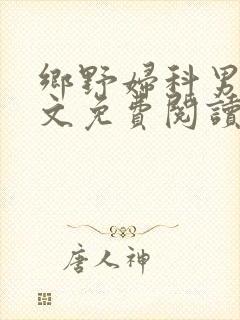 鄉野婦科男
文免費閱讀
唐人神